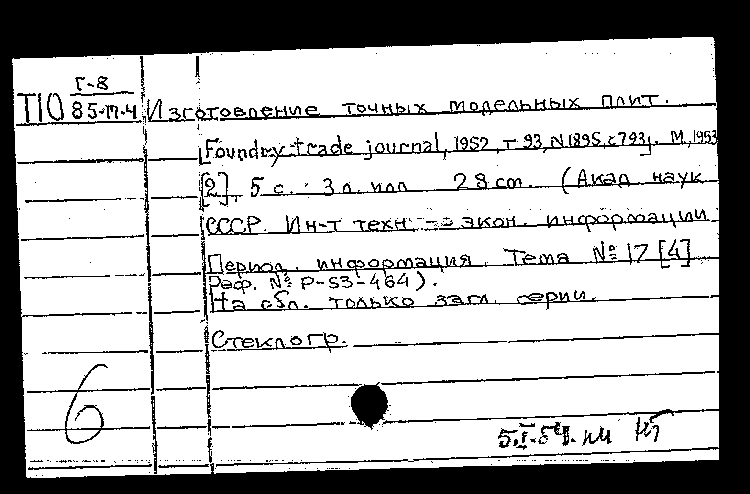 Г-8
П10 85-17-4 Изготовление точных модельных плит.
[Foundry trade journal, 1952, т 93, N 1895, с 793]. М, 1953
[2], 5 с. 3 л. илл 28 cm. (Акад наук
СССР. Ин-т техн.-экон. информации
Период. информация. Тема № 17 [4]
Реф. № Р-53-464).
На обл. только загл. серии.
Стеклогр.
6